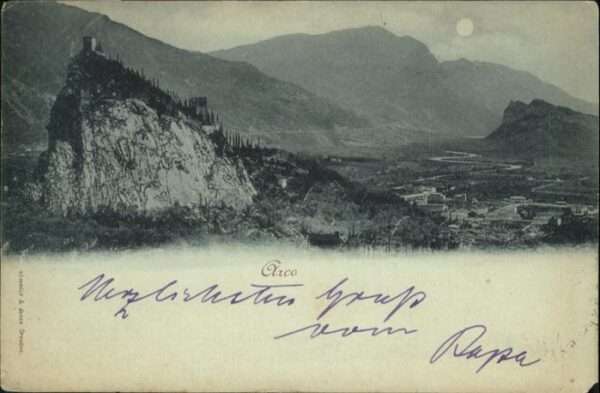 Arco
Herzlichsten Gruß
vom Papa